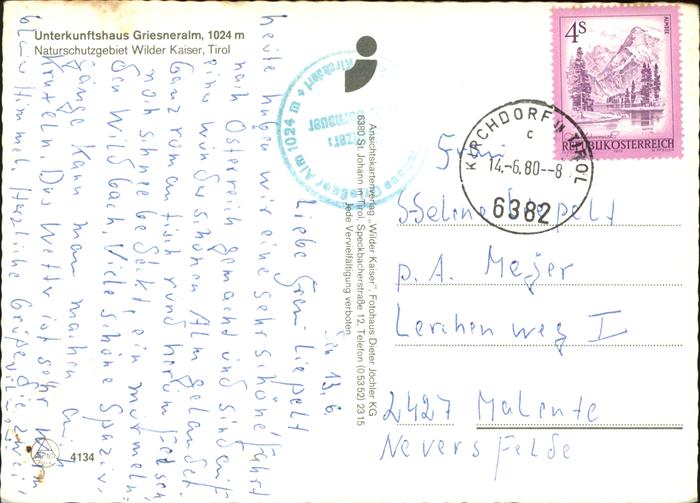 Unterkunftshaus Griesneralm, 1024 m
Naturschutzgebiet Wilder Kaiser, Tirol
4134
Ansichtskartenverlag „Wilder Kaiser“, Fotohaus Dieter Jöchler KG
6380 St. Johann in Tirol, Speckbacherstraße 12, Telefon (05352) 2315
Jede Vervielfältigung verboten
Alm 1024 m
Kirchdorf
4S
ALMSEE
REPUBLIK ÖSTERREICH
KIRCHDORF IN TIROL
c
14.-6.80--8
6382
Frau
Liepelt
p. A. Meyer
Lerchenweg I
2427 Malente
Neversfelde
Den 13.6
Liebe Frau Liepelt
heute haben wir eine sehr schöne Fahrt
nach Österreich gemacht und sind auf
eine wunderschönen Alm gelandet.
Ganz romantisch rund herum Felsen,
noch schneebedeckt, ein murmeln-
den Wildbach. Viele schöne Spazier-
gänge kann man machen
Das Wetter ist sehr warm
blau Himmel. Herzliche Grüße